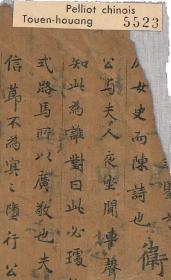 Pelliot chinois
Touen-houang
5523
女史而陳詩也 衛
公与夫人夜坐聞車聲
知此為誰對曰此必璩
式路馬所以廣敬也夫
信節不為冥〻墮行公